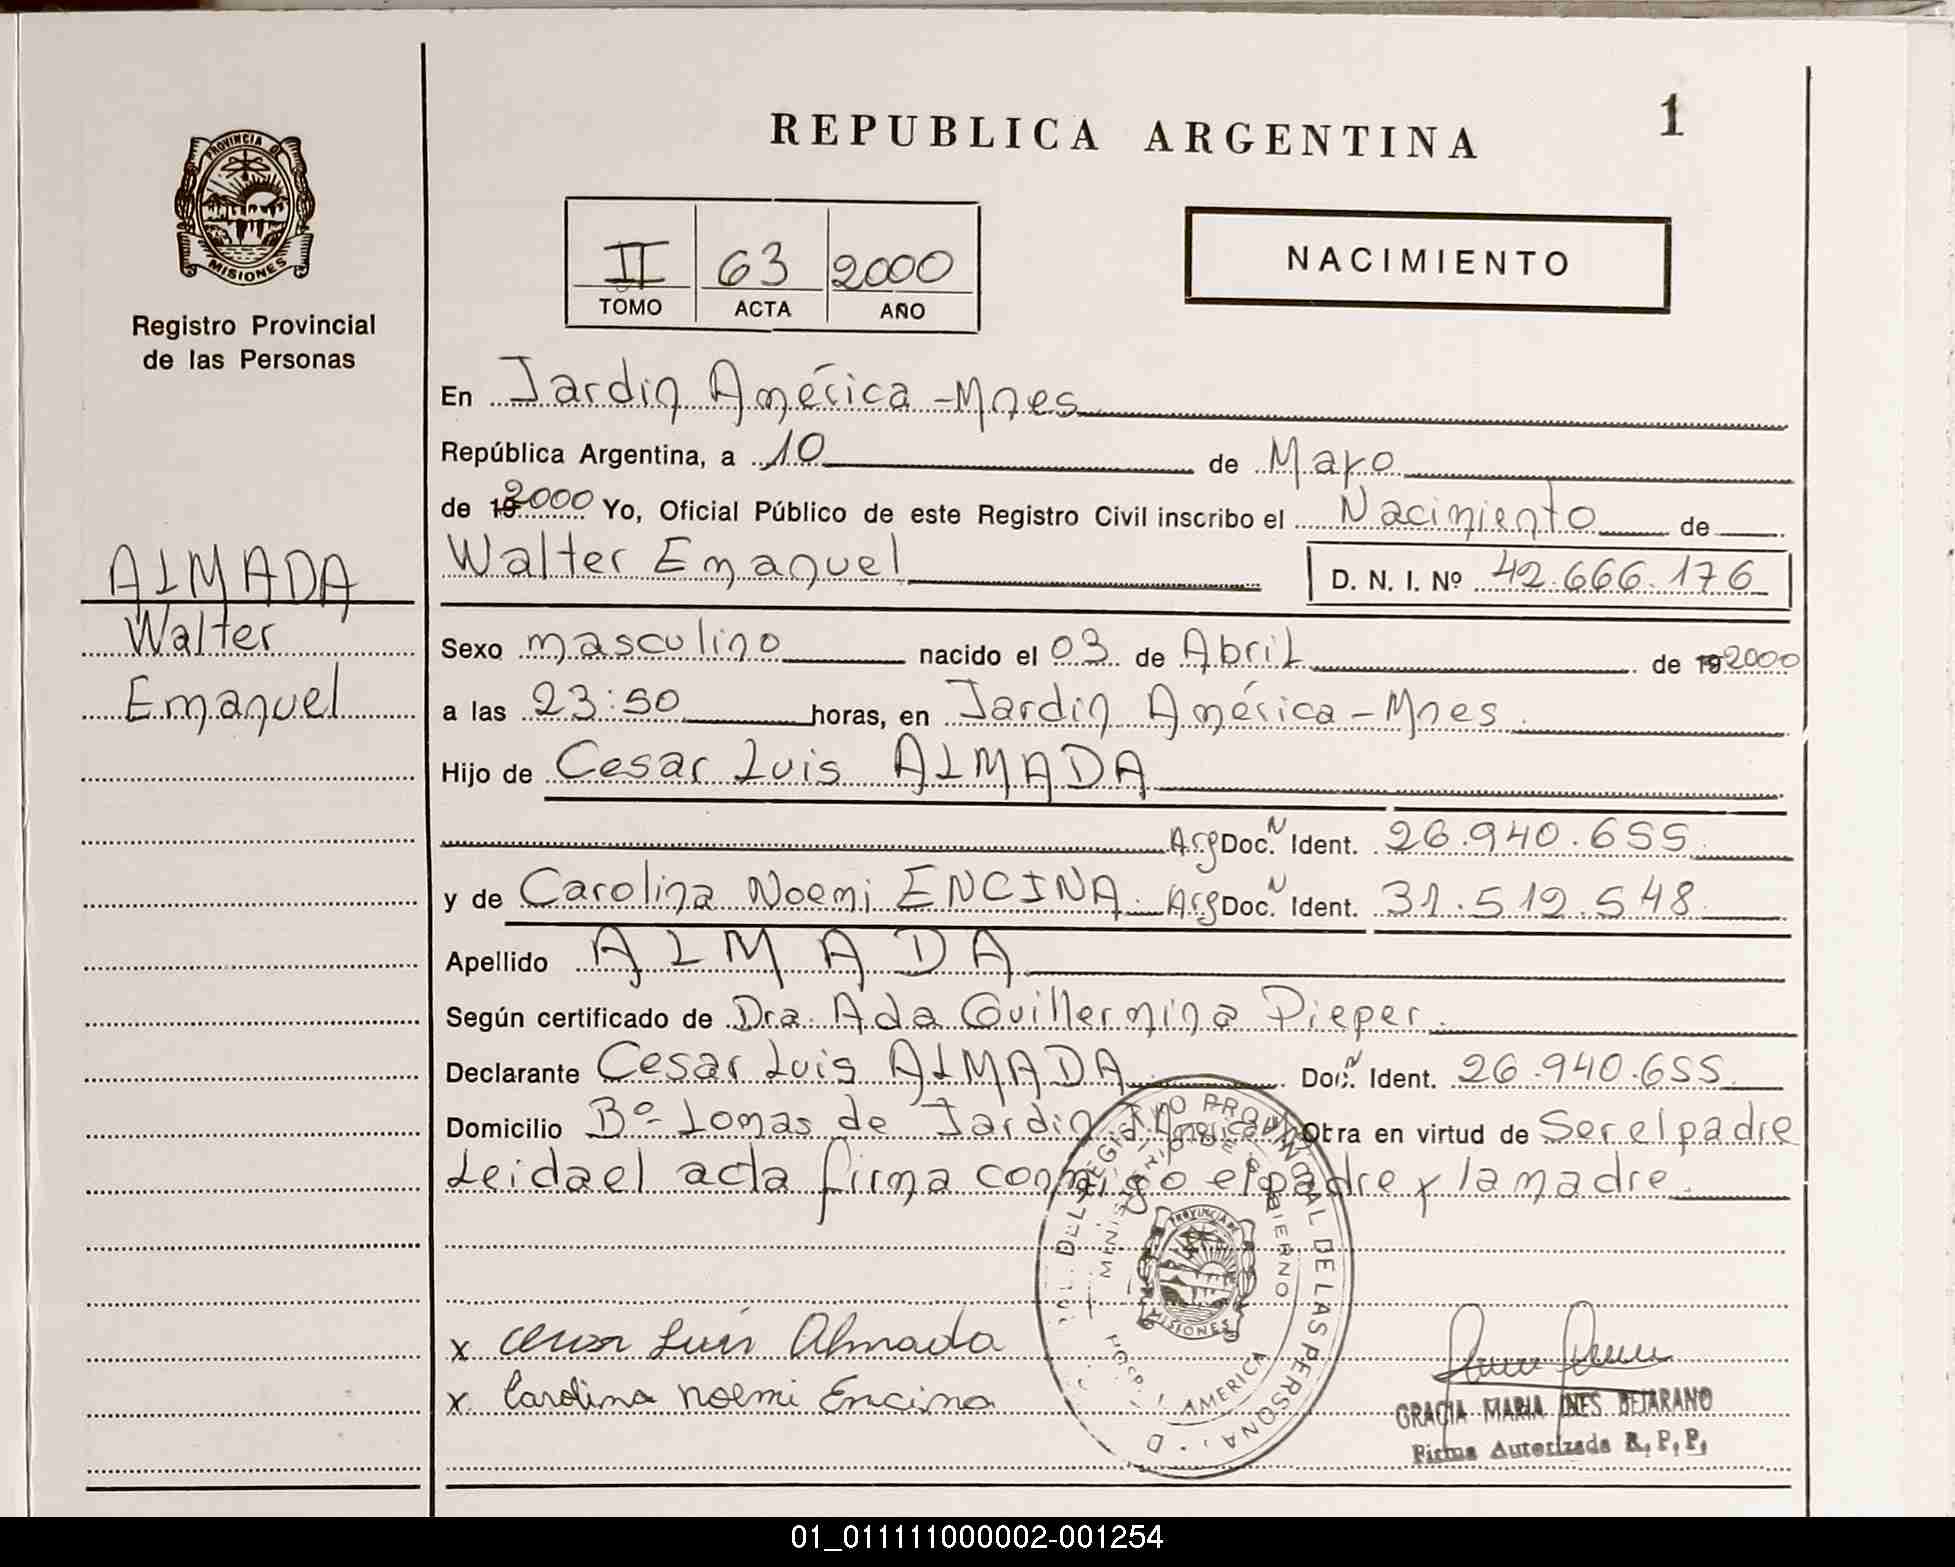 REPUBLICA ARGENTINA
1
PROVINCIA DE
MISIONES
Registro Provincial
de las Personas
II 63 2000
TOMO ACTA AÑO
NACIMIENTO
ALMADA
Walter
Emanuel
En Jardin América - Mnes
República Argentina, a 10 de Mayo
de 19 2000 Yo, Oficial Público de este Registro Civil inscribo el Nacimiento de
Walter Emanuel D. N. I. Nº 42.666.176
Sexo masculino nacido el 03 de Abril de 19 2000
a las 23:50 horas, en Jardin América - Mnes
Hijo de Cesar Luis ALMADA
Arg Doc. N Ident. 26.940.655
y de Carolina Noemi ENCINA. Arg Doc. N Ident. 31.512.548
Apellido ALMADA
Según certificado de Dra. Ada Guillermina Pieper.
Declarante Cesar Luis ALMADA Doc. N Ident. 26.940.655
Domicilio Bº Lomas de Jardin América Obra en virtud de Ser el padre
Leida el acta firma conmigo el padre y la madre.
x Cesar Luis Almada
x Carolina Noemi Encina
REGISTRO PROVINCIAL DE LAS PERSONAS
MINISTERIO DE GOBIERNO
PROVINCIA DE
MISIONES
AMERICA
GRACIA MARIA INES BEJARANO
Firma Autorizada R. P. P.
01_011111000002-001254